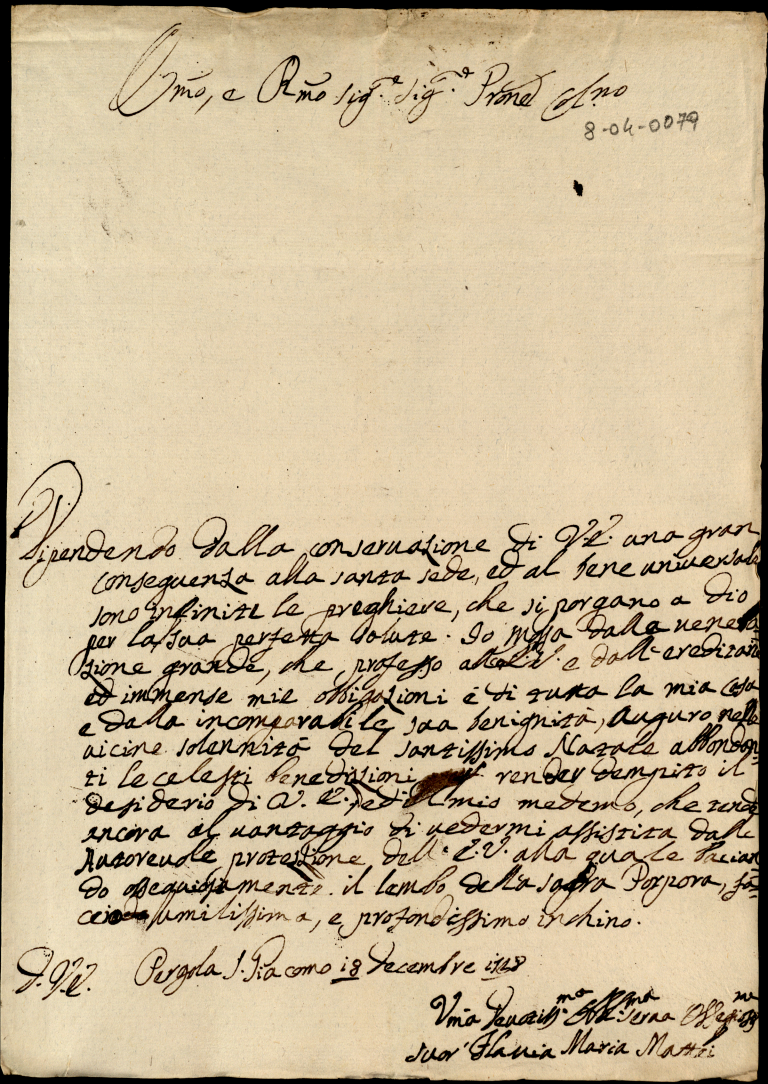 Emo, e Rmo Sig.re Sig.re Prone Colmo
8-04-0079
Dipendendo dalla conseruazione di V. E. una gran
conseguenza alla santa sede, ed al bene uniuersale
sono infiniti le preghiere, che si porgano a Dio
per la sua perfetta salute. Io mossa dalla venera
zione grande, che professo all' E. V. e dall' ereditarie
ed immense mie obbigazioni e di tutta la mia Casa
e dalla incomparabile sua benignità, Auguro nelle
uicine solennità del santissimo Natale abbondan
ti le celesti benedizioni render dempito il
desiderio di V. E., ed il mio medemo, che tende
ancora al uantaggio di uedermi assistita dalla
Autoreuole protezzione dell' E. V. alla quale bacian
do ossequiosamente il lembo della sagra Porpora, fa
ccio umilissimo, e profondissimo inchino.
D. V. E. Pergola S. Giacomo 18 Decembre 1728
Vma Deuotissma Obma serua Osseqma
Suor Flauia Maria Mattei